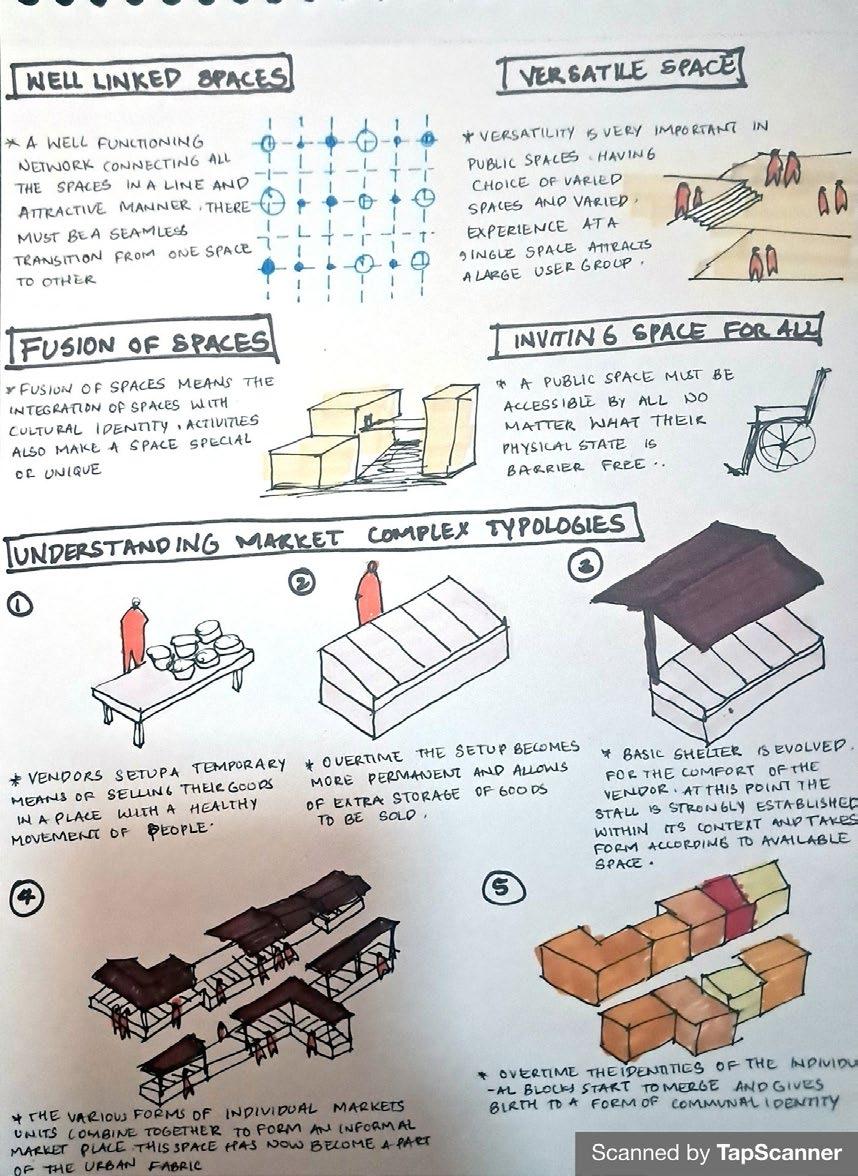 WELL LINKED SPACES
* A WELL FUNCTIONING
NETWORK CONNECTING ALL
THE SPACES IN A LINE AND
ATTRACTIVE MANNER. THERE
MUST BE A SEAMLESS
TRANSITION FROM ONE SPACE
TO OTHER
VERSATILE SPACE
* VERSATILITY IS VERY IMPORTANT IN
PUBLIC SPACES. HAVING
CHOICE OF VARIED
SPACES AND VARIED.
EXPERIENCE AT A
SINGLE SPACE ATTRACTS
A LARGE USER GROUP.
FUSION OF SPACES
* FUSION OF SPACES MEANS THE
INTEGRATION OF SPACES WITH
CULTURAL IDENTITY. ACTIVITIES
ALSO MAKE A SPACE SPECIAL
OR UNIQUE
INVITING SPACE FOR ALL
* A PUBLIC SPACE MUST BE
ACCESSIBLE BY ALL NO
MATTER WHAT THEIR
PHYSICAL STATE IS
BARRIER FREE..
UNDERSTANDING MARKET COMPLEX TYPOLOGIES
1
* VENDORS SETUP A TEMPORARY
MEANS OF SELLING THEIR GOODS
IN A PLACE WITH A HEALTHY
MOVEMENT OF PEOPLE.
2
* OVERTIME THE SETUP BECOMES
MORE PERMANENT AND ALLOWS
OF EXTRA STORAGE OF GOODS
TO BE SOLD.
3
* BASIC SHELTER IS EVOLVED.
FOR THE COMFORT OF THE
VENDOR. AT THIS POINT THE
STALL IS STRONGLY ESTABLISHED
WITHIN ITS CONTEXT AND TAKES
FORM ACCORDING TO AVAILABLE
SPACE.
4
* THE VARIOUS FORMS OF INDIVIDUAL MARKETS
UNITS COMBINE TOGETHER TO FORM AN INFORMAL
MARKET PLACE. THIS SPACE HAS NOW BECOME A PART
OF THE URBAN FABRIC
5
* OVERTIME THE IDENTITIES OF THE INDIVIDU
-AL BLOCKS START TO MERGE AND GIVES
BIRTH TO A FORM OF COMMUNAL IDENTITY
Scanned by TapScanner